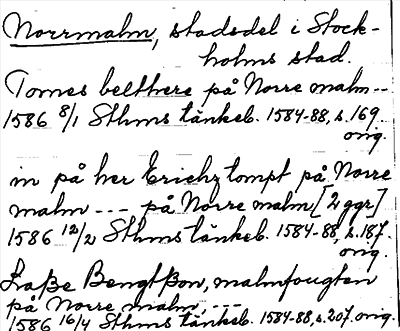 Norrmalm, stadsdel i Stock-
holms stad.
Tomes belthere på Norre malm --
1586 8/1 Sthms tänkeb. 1584-88, s. 169.
orig.
in på her Erichz tompt på Norre
malm --- på Norre malm [2 ggr]
1586 12/2 Sthms tänkeb. 1584-88, s. 187.
orig.
Laße Bengtßon, malmfougten
på Norre malm ---
1586 16/4 Sthms tänkeb. 1584-88, s. 207. orig.